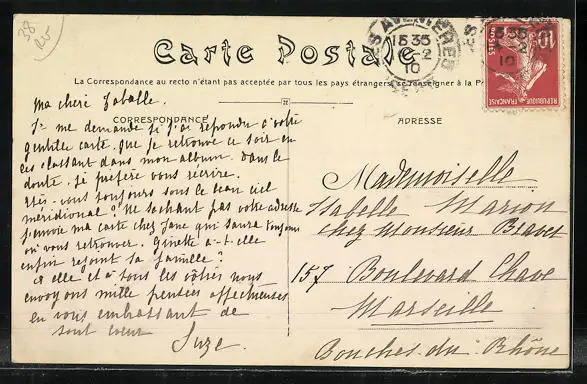 38
Carte Postale
La Correspondance au recto n'étant pas acceptée par tous les pays étrangers, se renseigner à la P
CORRESPONDANCE
Ma cheri Zabelle.
Je me demande si j'ai répondu à votre
gentille carte, que je retrouve ce soir en
les classant dans mon album. Dans le
doute, je préfère vous récrire.
Etes-vous toujours sous le beau ciel
méridional? Ne sachant pas votre adresse
j'envoie ma carte chez Jane qui saura toujours
où vous retrouver. Ginette a-t-elle
enfin rejoint sa famille?
à elle et à tous les vôtres nous
envoyons mille pensées affectueuses
en vous embrassant de
tout cœur
Suze.
ADRESSE
Mademoiselle
Isabelle Marion
chez Monsieur
157 Boulevard Chave
Marseille
Bouches du Rhône
15 35
2
10
10
POSTES
REPUBLIQUE FRANÇAISE